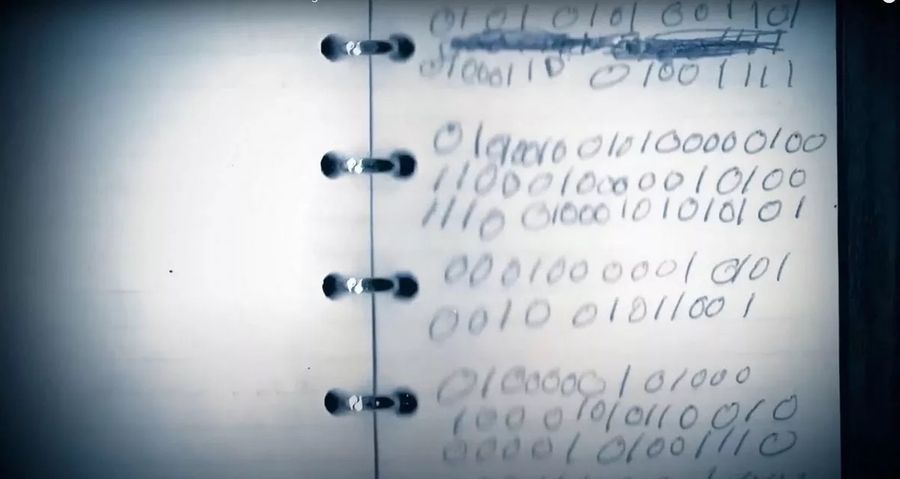 0101 0101 001101
01000110 01001111
01000010 010100000100
1100010000010100
1110 01000101010101
000100 0001 0101
0010 01011001
01000001 01000
10001010110010
00001 01001110